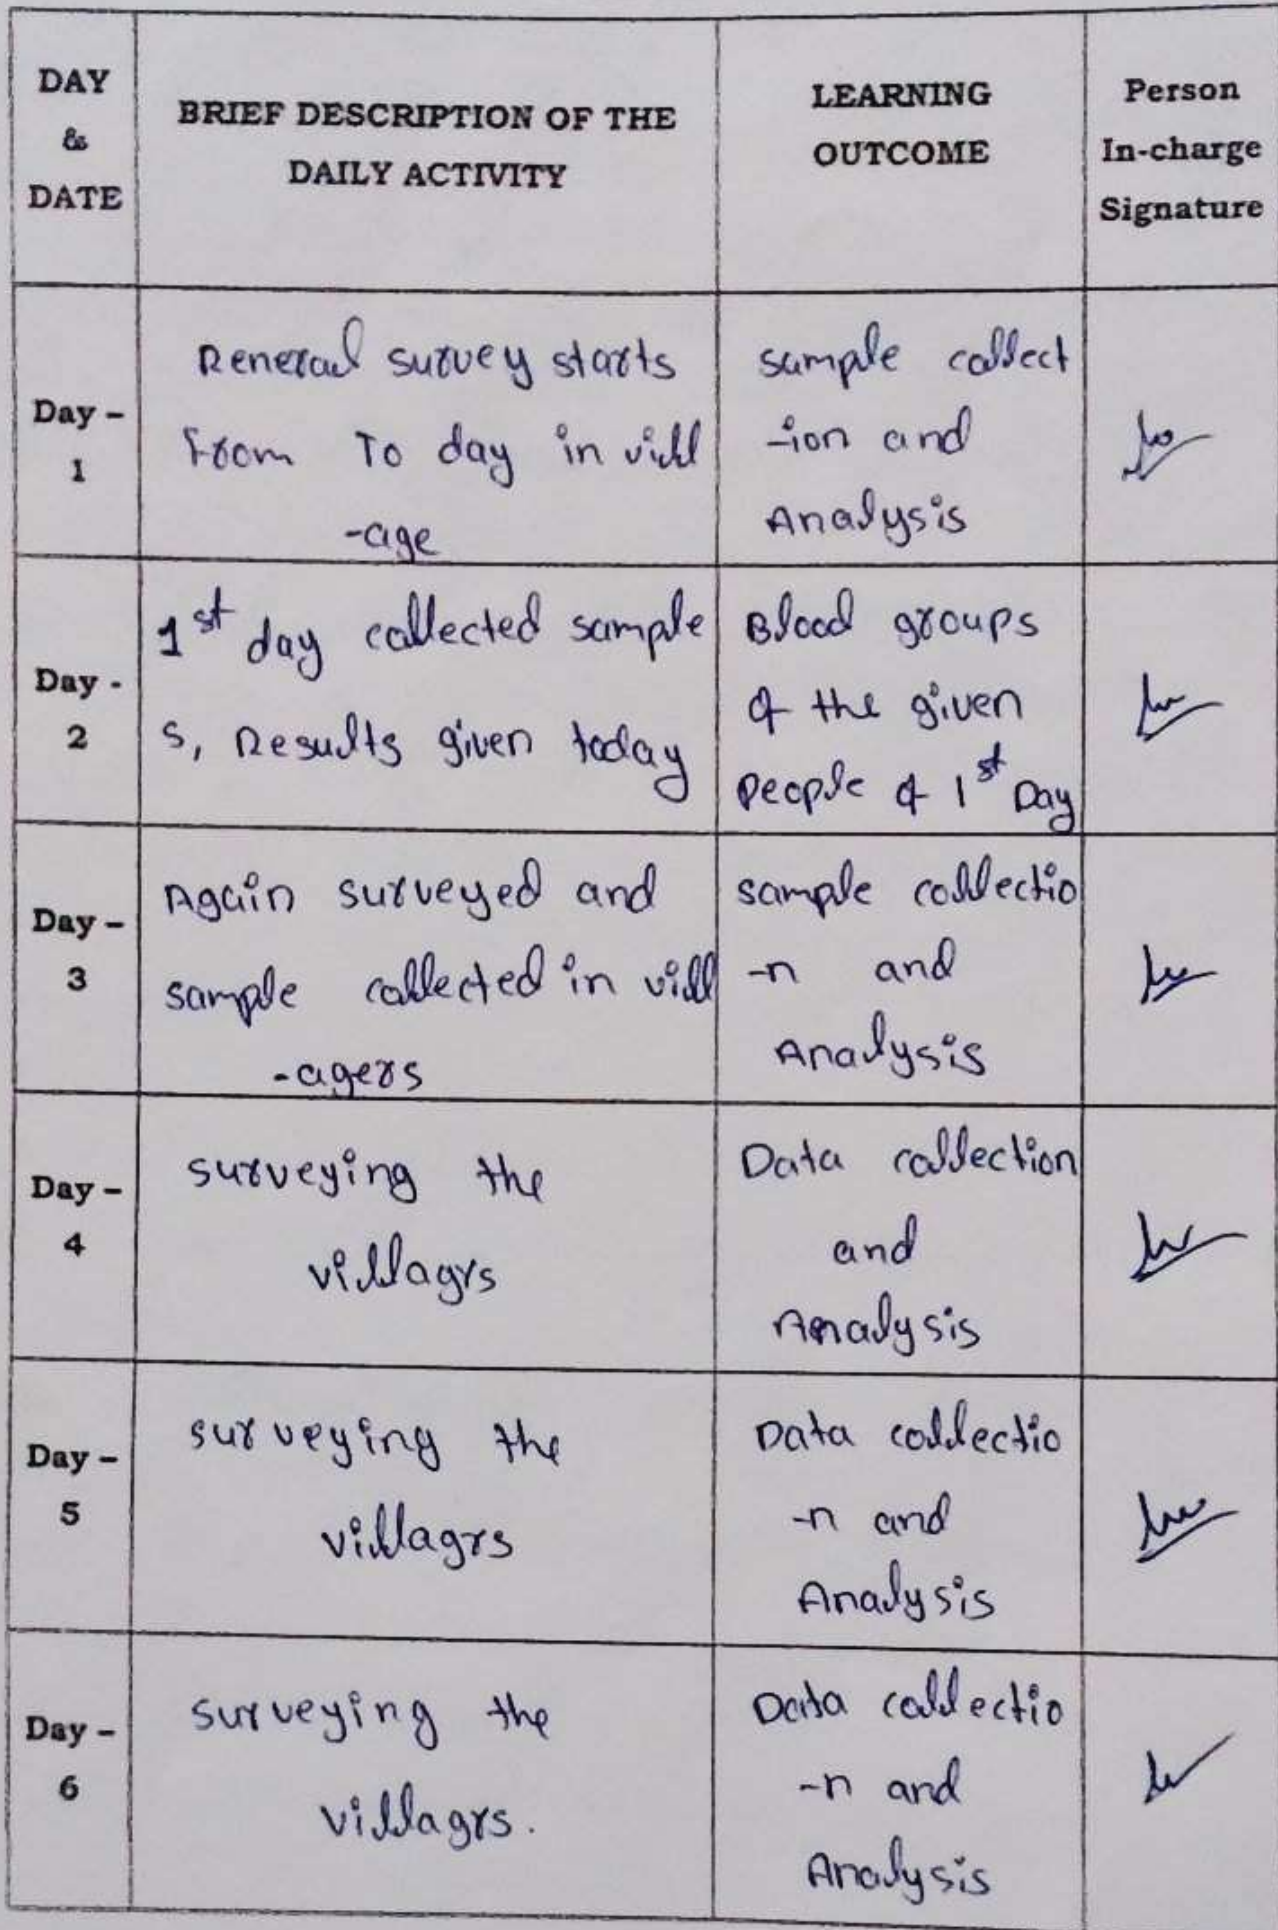 DAY
&
DATE
BRIEF DESCRIPTION OF THE
DAILY ACTIVITY
LEARNING
OUTCOME
Person
In-charge
Signature
Day –
1
Reneral survey starts
from To day in vill
-age
sample collect
-ion and
Analysis
Day -
2
1st day collected sample
s, Results given today
Blood groups
of the given
people of 1st Day
Day –
3
Again surveyed and
sample collected in vill
-agers
sample collectio
-n and
Analysis
Day –
4
surveying the
villagrs
Data collection
and
Analysis
Day –
5
surveying the
villagrs
Data collectio
-n and
Analysis
Day –
6
surveying the
villagrs.
Data collectio
-n and
Analysis